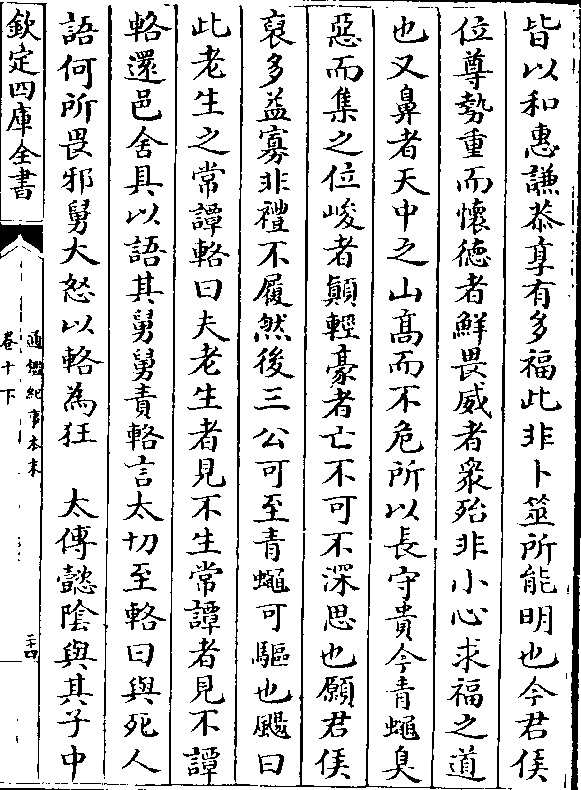 皆以和惠謙恭享有多福此非卜筮所能明也今君侯
位尊勢重而懷徳者鮮畏威者衆殆非小心求福之道
也又鼻者天中之山髙而不危所以長守貴今青蠅臭
惡而集之位峻者顛輕豪者亡不可不深思也願君侯
裒多益寡非禮不履然後三公可至青蠅可驅也颺曰
此老生之常譚輅曰夫老生者見不生常譚者見不譚
輅還邑舍具以語其舅舅責輅言太切至輅曰與死人
語何所畏邪舅大怒以輅為狂　太傅懿隂與其子中
欽定四庫全書
通鑑紀事本末
卷十下
二十四